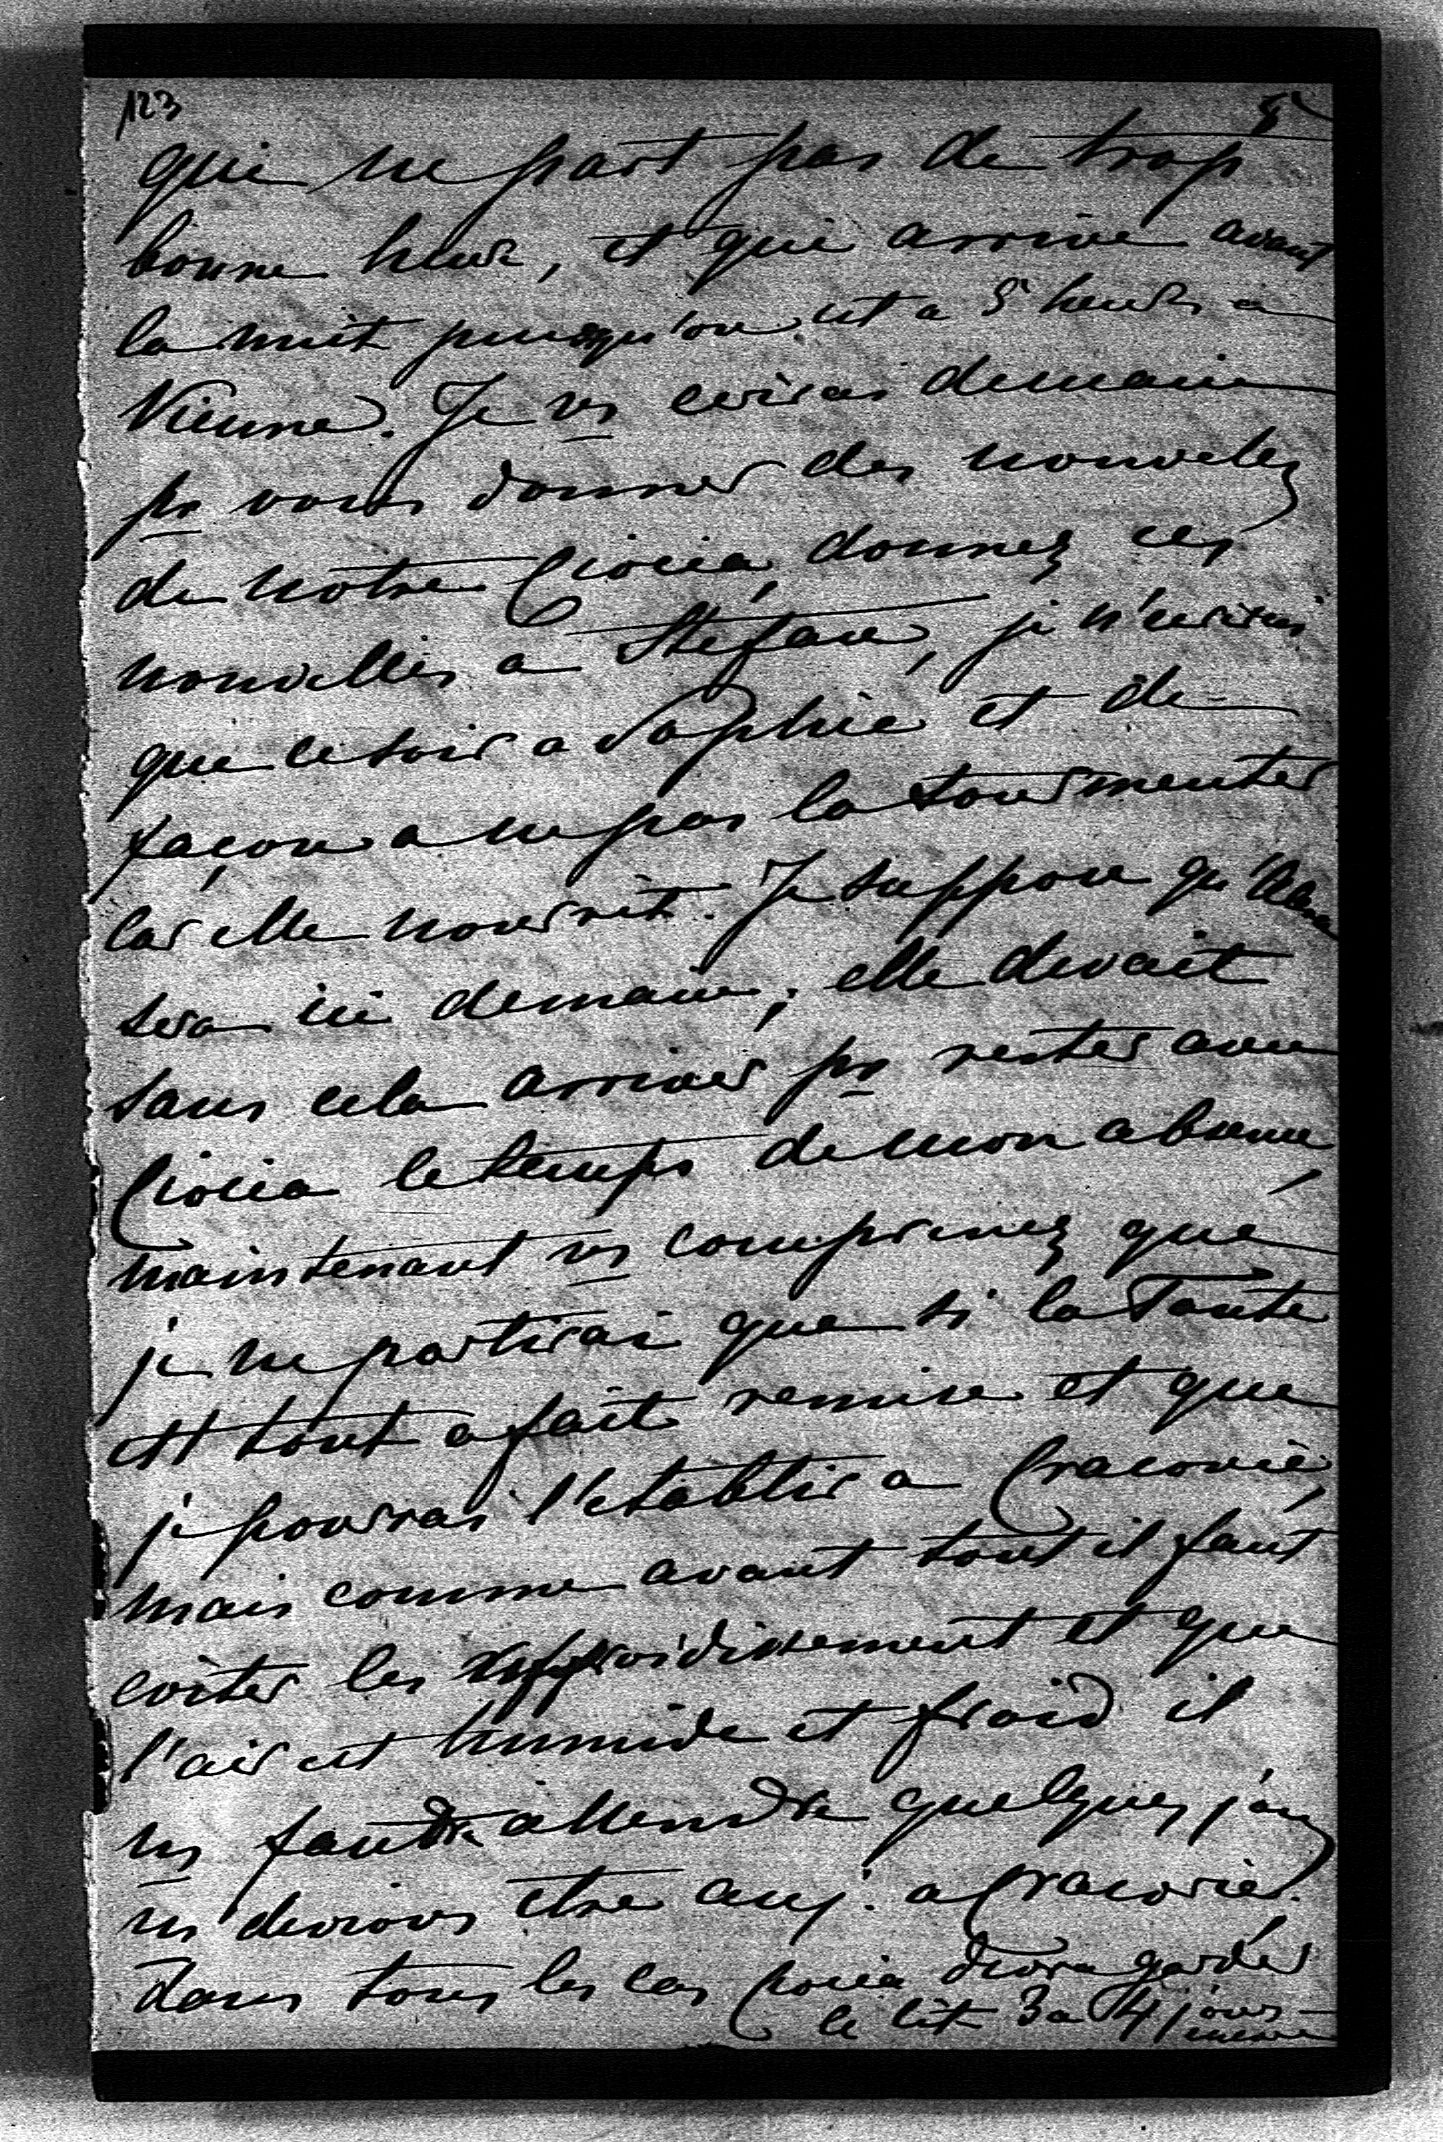 123
que ne part pas de trop
bonne heure, et qui arrive avant
la nuit puisqu'on est a 5 heures a
Vienne. Je vs ecrirai demain
pr vous donner des nouvelles
de notre Ciocia, donnez ces
nouvelles a Stefane, je n'ecrirai
que ce soir a Sophie et de
façon a ne pas la tourmenter
car elle nourrit. Je suppose qu'
sera ici demain; elle devait
sans cela arriver pr rester avec
Ciocia le temps de mon absence,
maintenant vs comprenez que
je ne partirai que si la Tante
est tout a fait remise et que
je pourrai l'etablir a Cracovie,
mais comme avant tout il faut
eviter les refroidissement et que
l'air est humide et froid il
ns faudra attendre quelques jours
ns devions etre auj. a Cracovie.
Dans tous les cas Ciocia devra garder
le lit 3 a 4 jours
encore